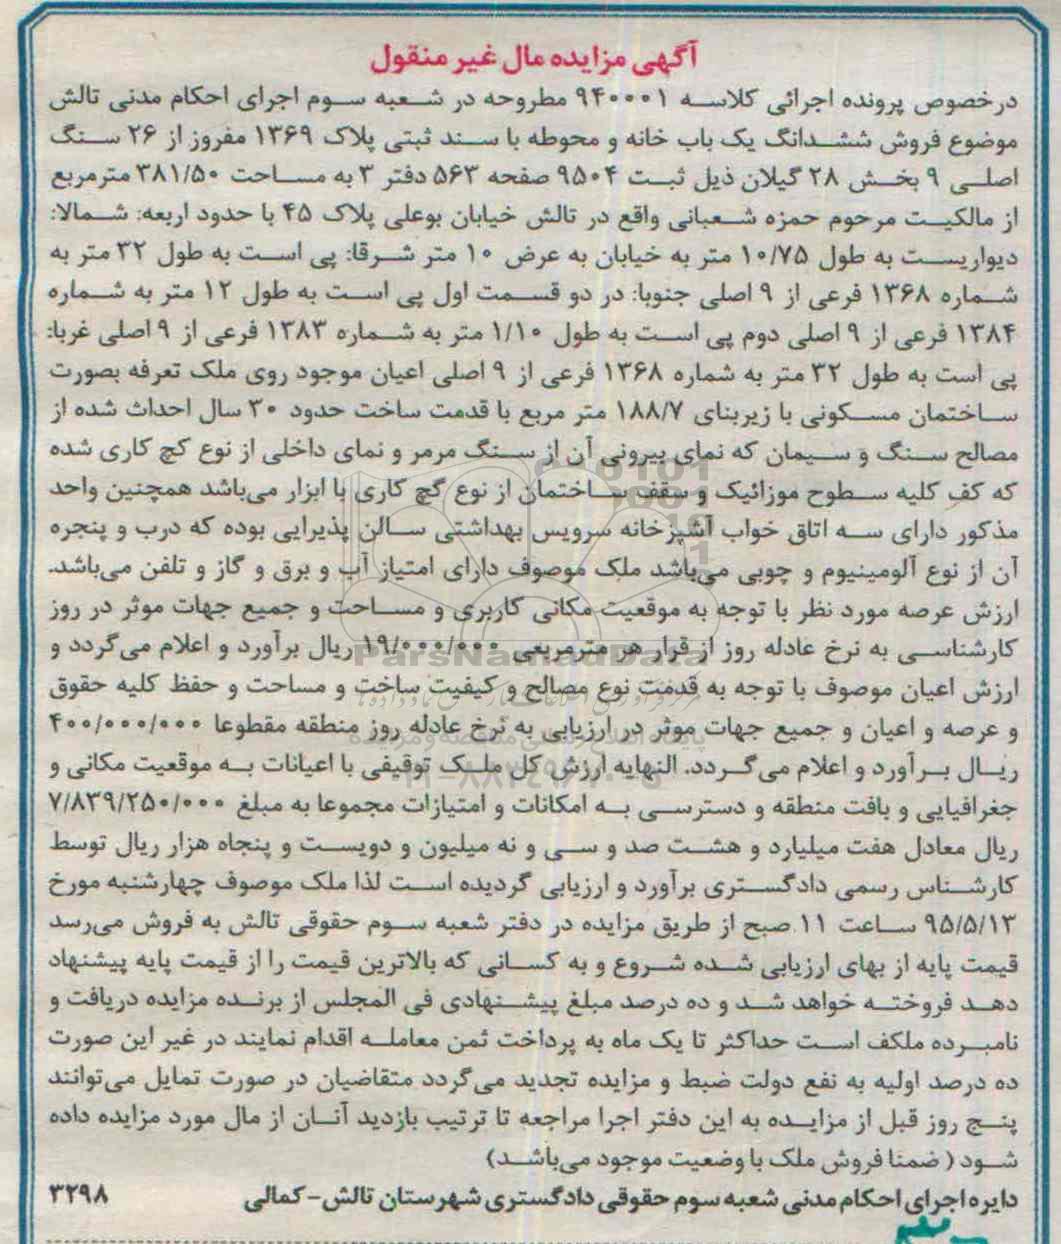 آگهی مزایده مال غیر منقول
درخصوص پرونده اجرائی کلاسه ۹۴۰۰۰۱ مطروحه در شعبه سوم اجرای احکام مدنی تالش
موضوع فروش ششدانگ یک باب خانه و محوطه با سند ثبتی پلاک ۱۳۶۹ مفروز از ۲۶ سنگ
اصلی ۹ بخش ۲۸ گیلان ذیل ثبت ۹۵۰۴ صفحه ۵۶۳ دفتر ۳ به مساحت ۳۸۱/۵۰ مترمربع
از مالکیت مرحوم حمزه شعبانی واقع در تالش خیابان بوعلی پلاک ۴۵ با حدود اربعه: شمالا:
دیواریست به طول ۱۰/۷۵ متر به خیابان به عرض ۱۰ متر شرقا: پی است به طول ۳۲ متر به
شماره ۱۳۶۸ فرعی از ۹ اصلی جنوبا: در دو قسمت اول پی است به طول ۱۲ متر به شماره
۱۳۸۴ فرعی از ۹ اصلی دوم پی است به طول ۱/۱۰ متر به شماره ۱۳۸۳ فرعی از ۹ اصلی غربا:
پی است به طول ۳۲ متر به شماره ۱۳۶۸ فرعی از ۹ اصلی اعیان موجود روی ملک تعرفه بصورت
ساختمان مسکونی با زیربنای ۱۸۸/۷ متر مربع با قدمت ساخت حدود ۳۰ سال احداث شده از
مصالح سنگ و سیمان که نمای بیرونی آن از سنگ مرمر و نمای داخلی از نوع کچ کاری شده
که کف کلیه سطوح موزائیک و سقف ساختمان از نوع گچ کاری با ابزار می‌باشد همچنین واحد
مذکور دارای سه اتاق خواب آشپزخانه سرویس بهداشتی سالن پذیرایی بوده که درب و پنجره
آن از نوع آلومینیوم و چوبی می‌باشد ملک موصوف دارای امتیاز آب و برق و گاز و تلفن می‌باشد.
ارزش عرصه مورد نظر با توجه به موقعیت مکانی کاربری و مساحت و جمیع جهات موثر در روز
کارشناسی به نرخ عادله روز از قرار هر مترمربعی ۱۹/۰۰۰/۰۰۰ ریال برآورد و اعلام می‌گردد و
ParsNamadData
ارزش اعیان موصوف با توجه به قدمت نوع مصالح و کیفیت ساخت و مساحت و حفظ کلیه حقوق
و عرصه و اعیان و جمیع جهات موثر در ارزیابی به نرخ عادله روز منطقه مقطوعا ۴۰۰/۰۰۰/۰۰۰
ریال برآورد و اعلام می‌گردد. النهایه ارزش کل ملک توقیفی با اعیانات به موقعیت مکانی و
جغرافیایی و بافت منطقه و دسترسی به امکانات و امتیازات مجموعا به مبلغ ۷/۸۳۹/۲۵۰/۰۰۰
ریال معادل هفت میلیارد و هشت صد و سی و نه میلیون و دویست و پنجاه هزار ریال توسط
کارشناس رسمی دادگستری برآورد و ارزیابی گردیده است لذا ملک موصوف چهارشنبه مورخ
۹۵/۵/۱۳ ساعت ۱۱ صبح از طریق مزایده در دفتر شعبه سوم حقوقی تالش به فروش می‌رسد
قیمت پایه از بهای ارزیابی شده شروع و به کسانی که بالاترین قیمت را از قیمت پایه پیشنهاد
دهد فروخته خواهد شد و ده درصد مبلغ پیشنهادی فی المجلس از برنده مزایده دریافت و
نامبرده ملکف است حداکثر تا یک ماه به پرداخت ثمن معامله اقدام نمایند در غیر این صورت
ده درصد اولیه به نفع دولت ضبط و مزایده تجدید می‌گردد متقاضیان در صورت تمایل می‌توانند
پنج روز قبل از مزایده به این دفتر اجرا مراجعه تا ترتیب بازدید آنان از مال مورد مزایده داده
شود ( ضمنا فروش ملک با وضعیت موجود می‌باشد)
دایره اجرای احکام مدنی شعبه سوم حقوقی دادگستری شهرستان تالش-کمالی ۳۲۹۸